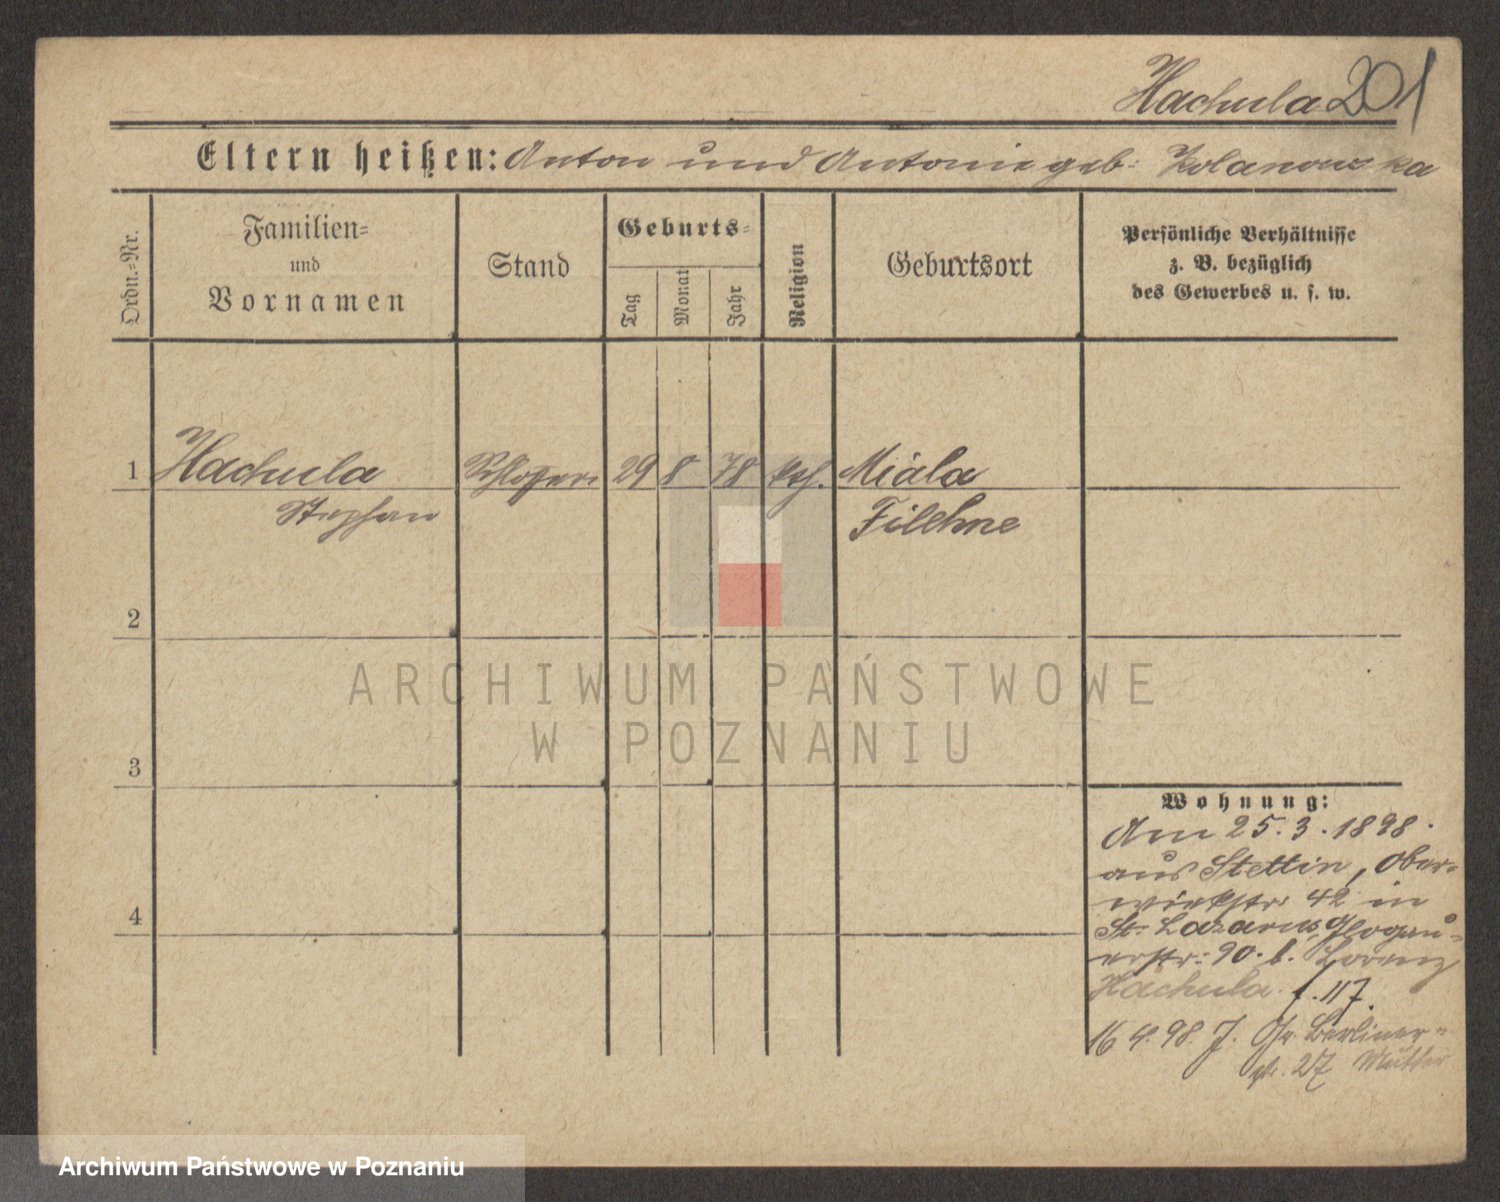 Hachula 201
Eltern heißen: Anton und Antonie geb. Kolanowska
Ordn.=Nr.
Familien=
und
Vornamen
Stand
Geburts=
Tag
Monat
Jahr
Religion
Geburtsort
Persönliche Verhältnisse
z. B. bezüglich
des Gewerbes u. s. w.
1 Hachula Schlosser 29 8 78 kth. Miala
Stephan Filehne
2
ARCHIWUM PAŃSTWOWE
W POZNANIU
3
Wohnung:
Am 25.3.1898.
aus Stettin, Ober=
wiekstr. 42 in
4
St. Lazarus, Glogau=
erstr. 90. b. Lorenz
Hachula. f. 117.
16 4. 98. J. Gr. Berliner=
str. 27 Mutter
Archiwum Państwowe w Poznaniu